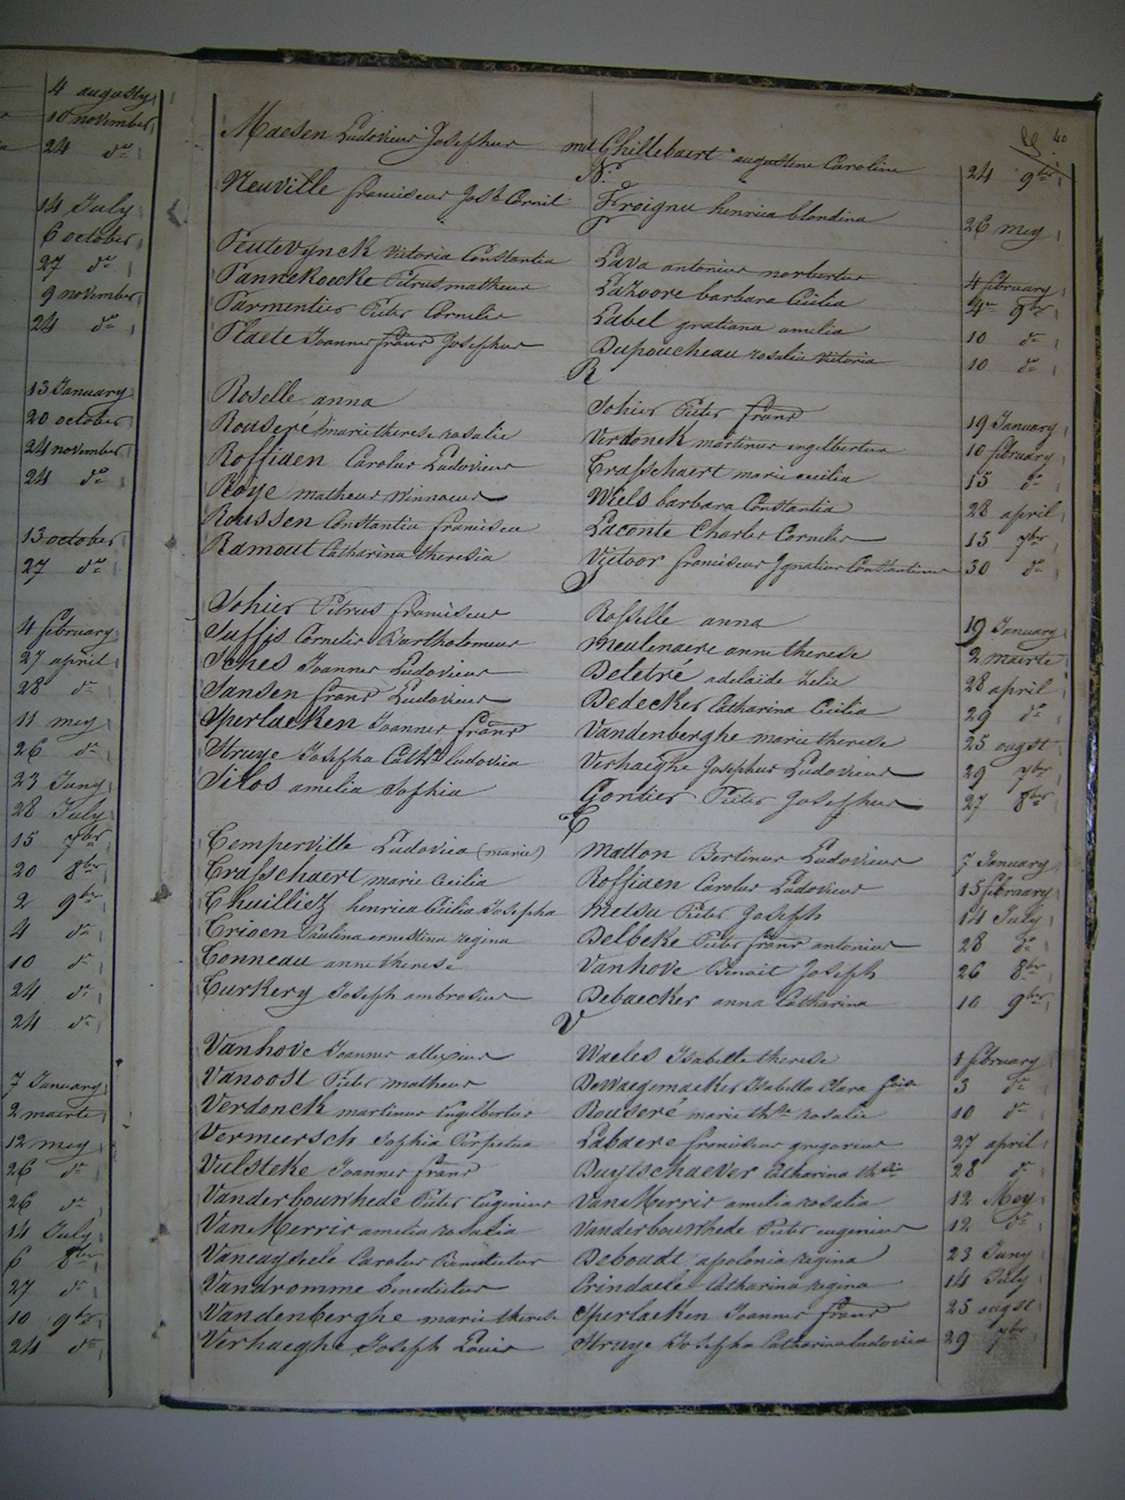 4 augusty
10 november
24 do
14 July
6 october
27 do
9 november
24 do
13 January
20 october
24 november
24 do
13 october
27 do
4 february
27 april
28 do
11 mey
26 do
23 Juny
28 July
15 7br
20 8br
2 9br
4 do
10 do
24 do
24 do
7 January
2 maerte
12 mey
26 do
26 do
14 July
6 8ber
27 do
10 9ber
24 do
40
Maesen Ludovicus Josephus met Ghillebaert augustine Caroline 24 9bre
N.
Neuville franciscus Josh Cornil Froignu henrica blondina 26 mey
P
Peutevynck Victoria Constantia Lava antonius norbertus 4 february
Pannekoucke Petrus matheus Lazoore barbara Cecilia 9br
Parmentier Pieter Cornelis Label gratiana amelia 10 do
Plaete Joannes frans Josephus Dupoucheau rosalia Victoria 10 do
R
Roselle anna Sohier Pieter frans 19 January
Rouseré marie therese rosalie Verdonck martinus engelbertus 10 february
Roffiaen Carolus Ludovicus Trasschaert marie cecilia 15 do
Roye matheus Winnocus Wiels barbara Constantia 28 april
Roussen Constantia francisca Laconte Charles Cornelis 15 7br
Ramout Catharina theresia Victoor franciscus Ignatius Constantinus 30 do
S
Sohier Petrus franciscus Rosselle anna 19 January
Suffis Cornelis Bartholomeus Meulenaere anne therese 2 maerte
Sches Joannes Ludovicus Deletré adelaide Zelie 28 april
Sansen frans Ludovicus Dedecker Catharina Cecilia 29 do
Sperlaeken Joannes frans Vandenberghe marie therese 25 augst
Struye Josepha Catha ludovica Verhaeghe Josephus Ludovicus 29 7br
Silos amelia Sophia Gontier Pieter Josephus 27 8ber
T
Temperville Ludovica (marie) Matton Bertinus Ludovicus 7 January
Trasschaert marie Cecilia Roffiaen Carolus Ludovicus 15 february
Thuilliez henrica Cecilia Josepha Metsu Pieter Joseph 14 July
Trioen Paulina ernestina regina Delbeke Pieter frans antonius 28 do
Tonneau anne therese Vanhove Benoit Joseph 26 8ber
Turkery Joseph ambrosius Debaecker anna Catharina 10 9ber
V
Vanhove Joannes allexius Waeles Isabelle therese 1 february
Vanoost Pieter matheus DeWaegemaeker Isabella Clara 3 do
Verdonck martinus Engelbertus Rouseré marie these rosalie 10 do
Vermeersch Sophia Perpetua Labaere franciscus gregorius 27 april
Vulsteke Joannes frans Duytschaever Catharina 28 do
Vanderbourrhede Pieter Eugenius VanMerris amelia rosalia 12 Mey
VanMerris amelia rosalia Vanderbourrhede Pieter eugenius 12 do
Vancuyseele Carolus Benedictus Deboudt apolonia regina 23 Juny
Vandromme benedictus Crindaele Catharina regina 14 July
Vandenberghe marie therese Sperlaeken Joannes frans 25 augst
Verhaeghe Joseph Louis Struye Josepha Catharina ludovica 29 7br